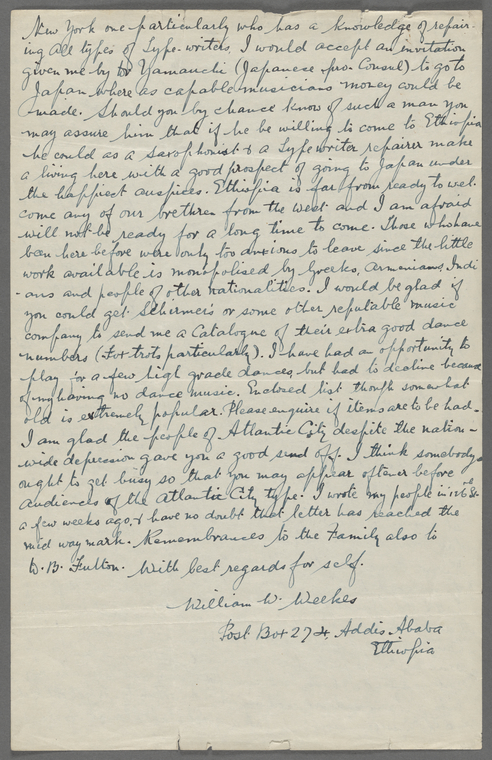 New York one particularly who has a knowledge of repair-
ing all types of Type-writers, I would accept an invitation
given me by Dr Yamauchi (Japanese pro. Consul) to go to
Japan where as capable musicians money could be
made. Should you by chance know of such a man you
may assure him that if he be willing to come to Ethiopia
he could as a Saxophonist & a Typewriter repairer make
a living here with a good prospect of going to Japan under
the happiest auspices. Ethiopia is far from ready to wel-
come any of our brethren from the West and I am afraid
will not be ready for a long time to come. Those who have
been here before were only too anxious to leave since the little
work available is monopolised by Greeks, Armenians, Indi
-ans and people of other nationalities. I would be glad if
you could get Schirmers or some other reputable music
company to send me a Catalogue of their extra good dance
numbers (Fox trots particularly). I have had an opportunity to
play for a few high grade dances, but had to decline because
of my having no dance music. Enclosed list though somewhat
old is extremely popular. Please enquire if items are to be had.
I am glad the people of Atlantic City despite the nation-
wide depression gave you a good send off. I think somebody
ought to get busy so that you may appear oftener before
audiences of the Atlantic City type. I wrote my people in
a few weeks ago, & have no doubt that letter has reached the
mid way mark. Remembrances to the Family also to
W. B. Fulton. With best regards for self.
William W. Weekes
Post Box 274, Addis-Ababa
Ethiopia